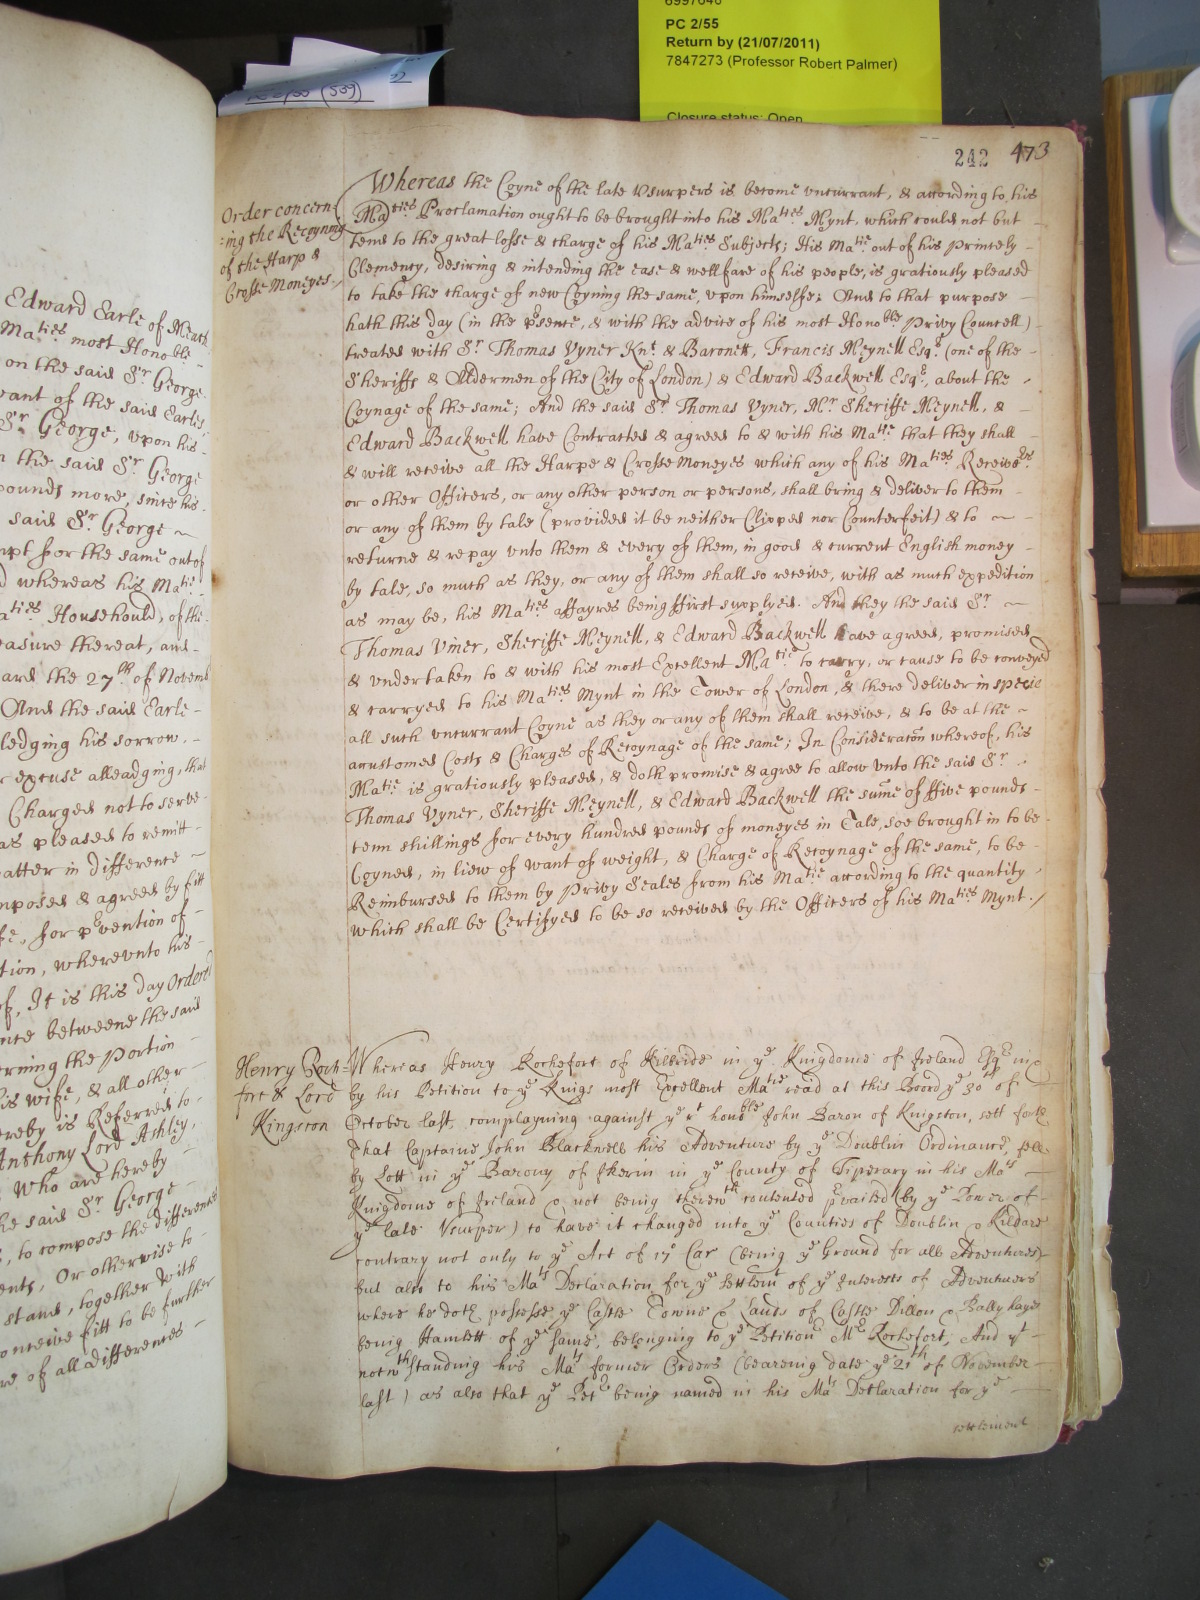 6997646
PC 2/55
Return by (21/07/2011)
7847273 (Professor Robert Palmer)
Closure status: Open
242 473
Edward Earle of Meath
Maties most Honoble
on the said Sr George
vant of the said Earles
Sr George, vpon his
n the said Sr George
pounds more, since his
said Sr George
mpt for the same out of
d whereas his Matie
aties Househould, of the
easure thereat, and
ard the 27th of Novemb
And the said Earle
ledging his sorrow
r excuse alleadging, that
Charged not to serve
as pleased to remitt
atter in difference
mposed & agreed by fitt
fe, for pevention of
tion, wherevnto his
of, It is this day Ordered
nce betweene the said
erning the Portion
is wife, & all other
ereby is Referred to
Anthony Lord Ashley,
who are hereby
he said Sr George
, to compose the differences
ents, Or otherwise to
stand, together with
onceive fitt to be further
re of all differences
Order concern-
:ing the Recoyning
of the Harp &
Crosse Moneyes
Whereas the Coyne of the late Vsurpers is become vncurrant, & according to his
Maties Proclamation ought to be brought into his Maties Mynt, which could not but
tend to the great losse & charge of his Maties Subjects; His Matie out of his Princely
Clemency, desiring & intending the ease & wellfare of his people, is gratiously pleased
to take the charge of new Coyning the same, vpon himselfe; And to that purpose
hath this day (in the psence, & with the advice of his most Honoble Privy Councell)
treated with Sr Thomas Vyner Knt & Baronett, Francis Meynell Esqr (one of the
Sheriffs & Aldermen of the City of London) & Edward Backwell Esqr, about the
Coynage of the same; And the said Sr Thomas Vyner, Mr Sheriffe Meynell, &
Edward Backwell have Contracted & agreed to & with his Matie that they shall
& will receive all the Harpe & Crosse Moneyes which any of his Maties Receivers
or other Officers, or any other person or persons, shall bring & deliver to them
or any of them by tale (provided it be neither Clipped nor Counterfeit) & to
returne & repay vnto them & every of them, in good & current English money
by tale, so much as they, or any of them shall so receive, with as much expedition
as may be, his Maties affayres being ffirst supplyed. And they the said Sr
Thomas Viner, Sheriffe Meynell, & Edward Backwell have agreed, promised
& vndertaken to & with his most Excellent Matie to carry, or cause to be conveyed
& carryed to his Maties Mynt in the Tower of London, & there deliver in specie
all such vncurrant Coyne as they or any of them shall receive, & to be at the
accustomed Costs & Charges of Recoynage of the same; In Consideracon whereof, his
Matie is gratiously pleased, & doth promise & agree to allow vnto the said Sr
Thomas Vyner, Sheriffe Meynell, & Edward Backwell the sume of ffive pounds
tenn shillings for every hundred pounds of moneyes in Tale, soe brought in to be
Coyned, in liew of want of weight, & Charge of Recoynage of the same, to be
Reimbursed to them by Privy Seales from his Matie according to the quantity
which shall be Certifyed to be so received by the Officers of his Maties Mynt.
Henry Roch=
fort & Lord
Kingston
Whereas Henry Rochefort of Kilbride in ye Kingdome of Ireland Esqr
by his Petition to ye Kings most Excellent Matie read at this Board ye 30th of
October last, complayning against ye rt honble John Baron of Kingston, sett forth
That Captaine John Blackwell his Adventure by ye Doublin Ordinance, fell
by Lott in ye Barony of Ikerin in ye County of Tiperary in his Mats
Kingdome of Ireland & not being therewth contented pvailed (by ye Power of
ye late Vsurper) to have it changed into ye Counties of Doublin & Kildare
contrary not only to ye Act of 17 Car (being ye Ground for all Adventures)
but also to his Mats Declaration for ye settlemt of ye Interests of Adventurers
where he doth possesse ye Castle Towne & Lands of Castle Dillon & Ballyhayes
being Hamlett of ye same, belonging to ye Petitionr Mr Rochefort, And yt
notwthstanding his Mats former Orders (bearing date ye 21th of November
last) as also that ye Petr being named in his Mats Declaration for ye
settlement